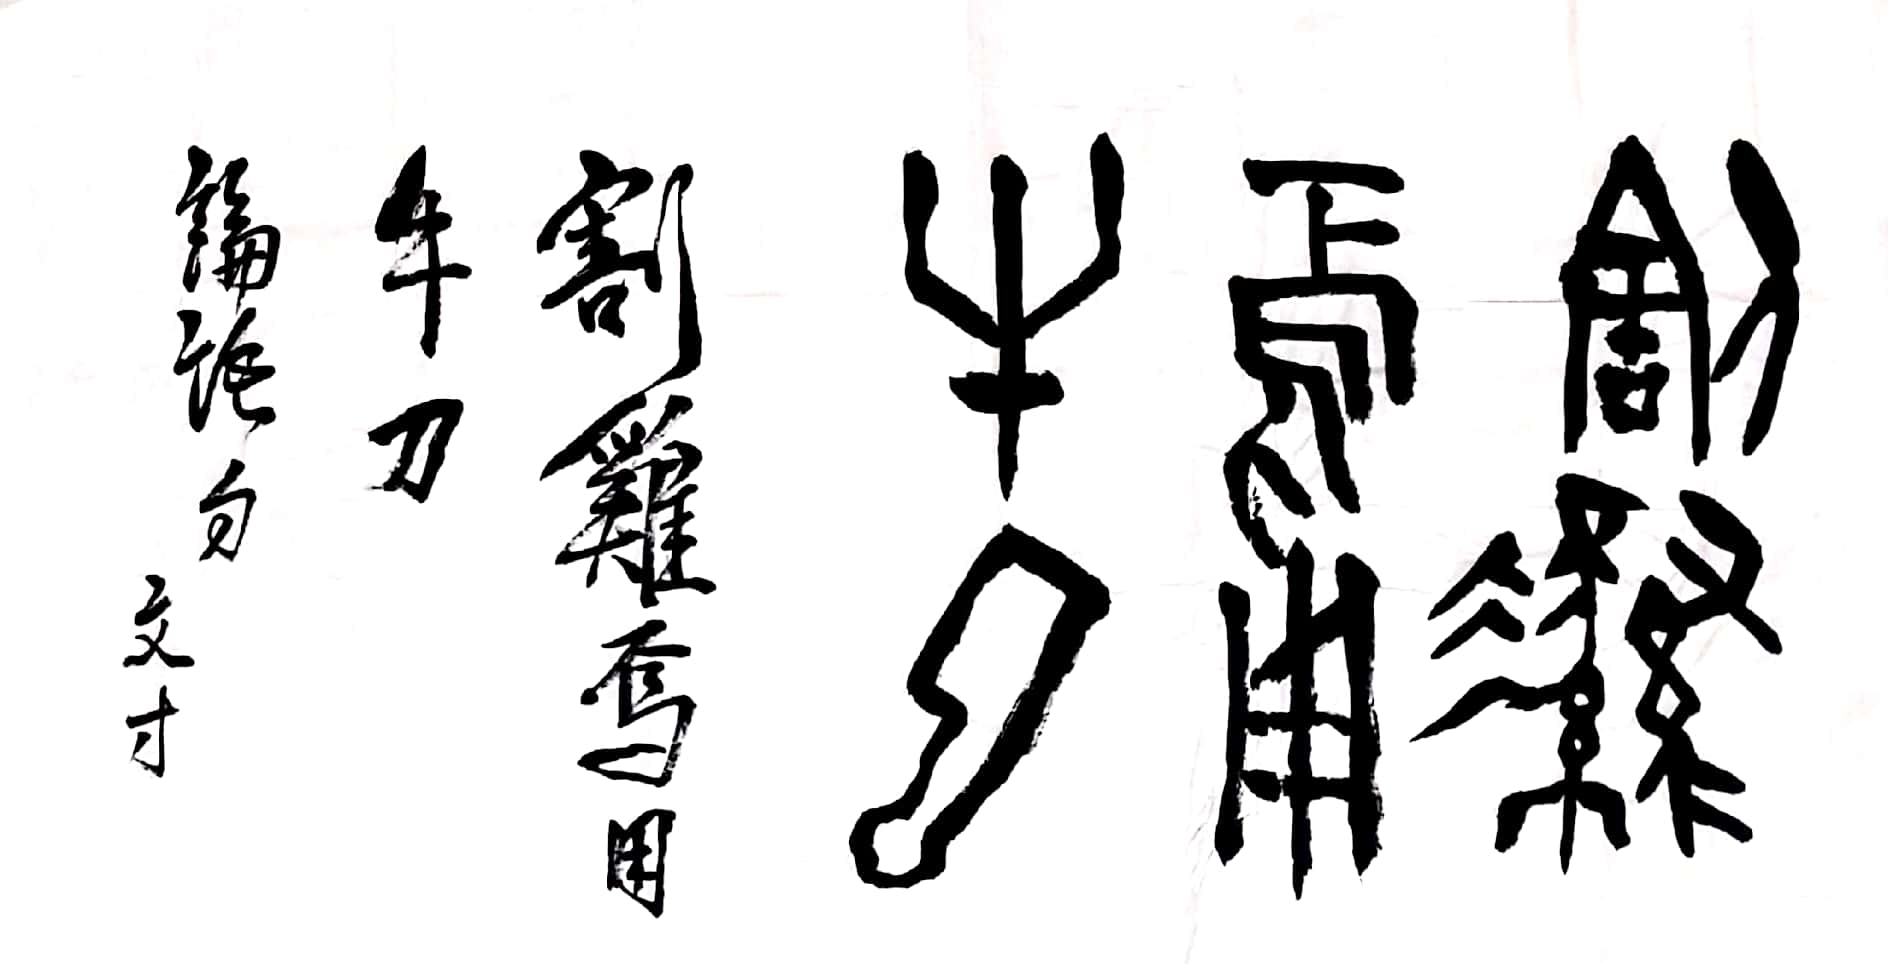 割雞
焉用
牛刀
割雞焉用
牛刀
論語句
文才